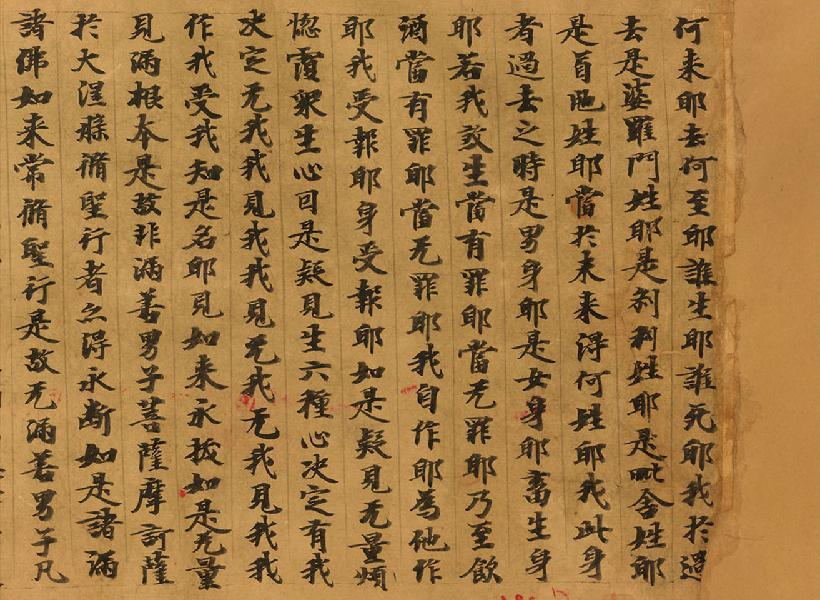 何来耶去何至耶誰生耶誰死耶我於過
去是婆羅門姓耶是刹利姓耶是毗舍姓耶
是首陁姓耶當於未来得何姓耶我此身
者過去之時是男身耶是女身耶畜生身
耶若我煞生當有罪耶當无罪耶乃至飲
酒當有罪耶當无罪耶我自作耶為他作
耶我受報耶身受報耶如是疑見无量煩
惚覆衆生心回是疑見生六種心决定有我
决定无我我見我我見无我无我見我我
作我受我知是名耶見如来永拔如是无量
見漏根本是故非漏善男子菩薩摩訶薩
於大涅槃脩聖行者亦得永断如是諸漏
諸佛如来常脩聖行是故无漏善男子凡